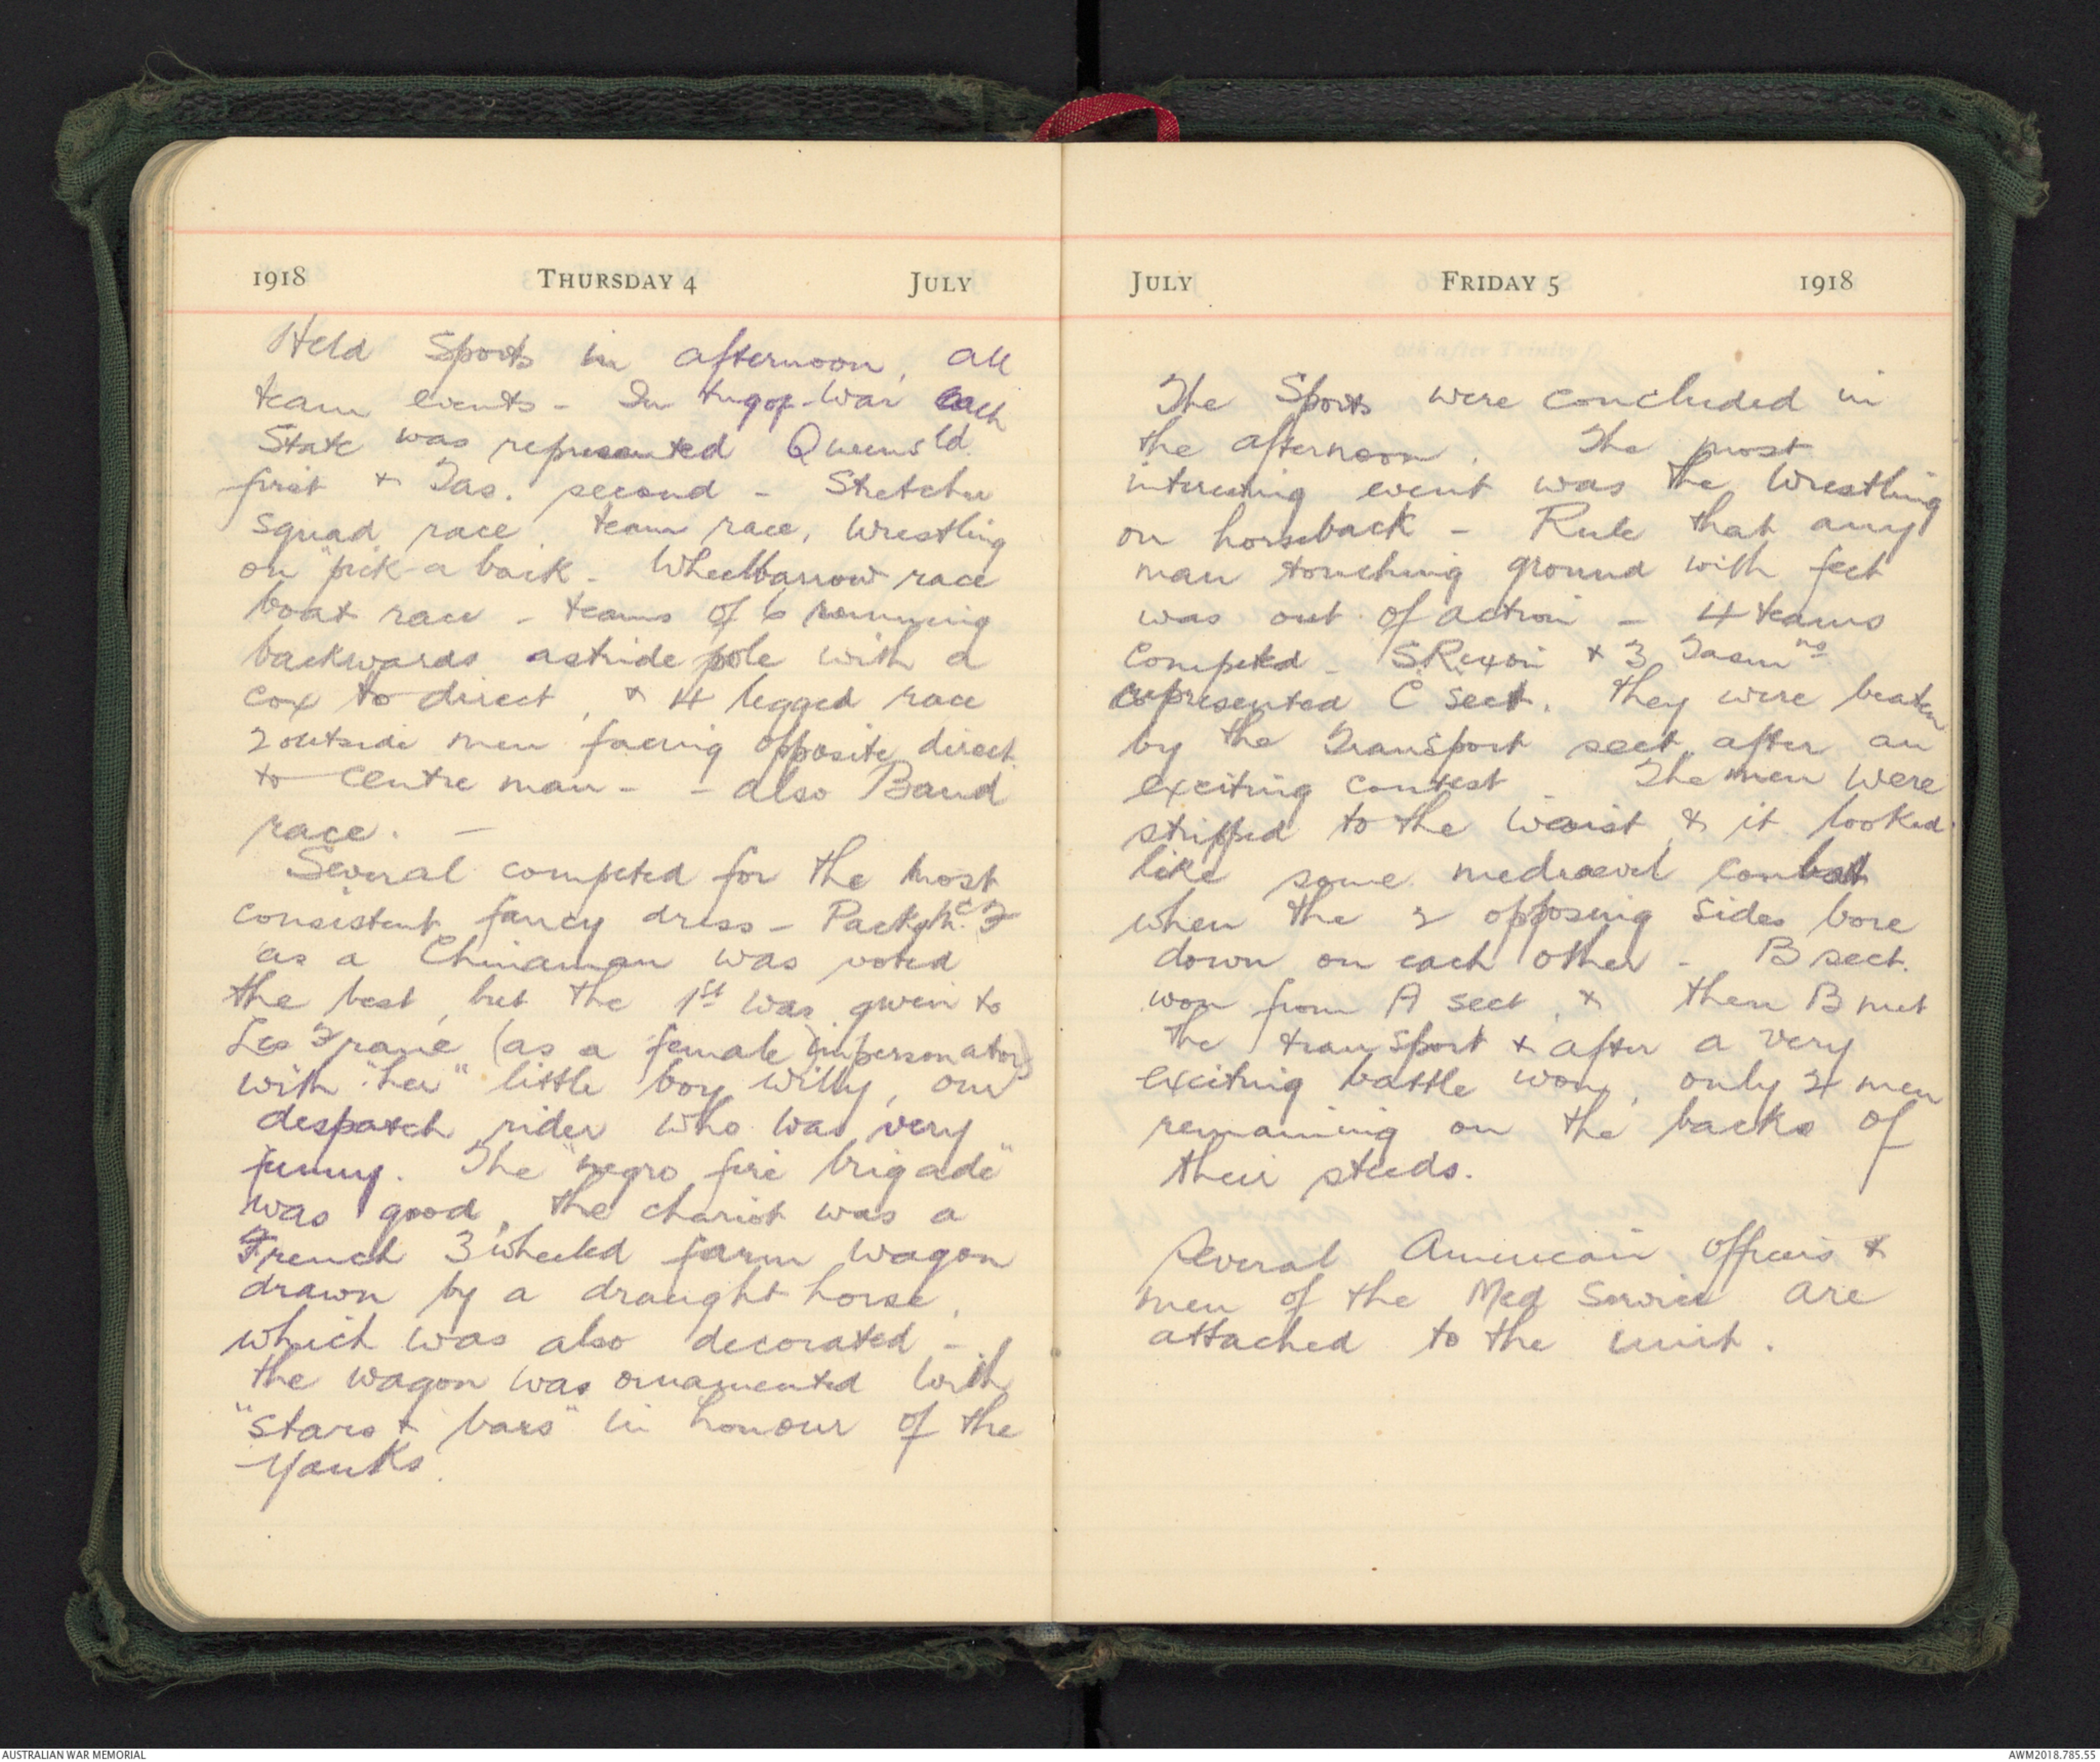 1918 THURSDAY 4 JULY
Held Sports in afternoon, all
team events - In tug of-War each
State was represented Queensld.
first + Tas. second - Stretcher
squad race, team race, Wrestling
on "pick-a back - Wheelbarrow race
boat race - teams of 6 running
backwards astride pole with a
cox to direct, + 4 legged race
2 outside men facing opposite direct.
to centre man - - also Band
race. -
Several competed for the most
consistent fancy dress -
as a Chinaman was voted
the best, but the 1st was given to
Les (as a female impersonator)
with "her" little boy Willy, our
despatch rider who was very
funny. The "negro fire brigade"
was good, the chariot was a
French 3 wheeled farm wagon
drawn by a draught horse,
which was also decorated -
the wagon was ornamented with
"stars + bars" in honour of the
Yanks.
JULY FRIDAY 5 1918
The Sports were concluded in
the afternoon. The most
interesting event was the Wrestling
on horseback - Rule that any
man touching ground with feet
was out of action - 4 teams
competed - + 3 Tasmns
represented C sect. They were beaten
by the Transport sect. after an
exciting contest - The men were
stripped to the waist & it looked
like some mediaevel combat
when the 2 opposing sides bore
down on each other - B sect.
won from A sect, & then B met
the transport + after a very
exciting battle won, only men
remaining on the backs of
their steeds.
Several American Officers +
men of the Med Service are
attached to the unit.
AUSTRALIAN WAR MEMORIAL
AWM2018.785.55